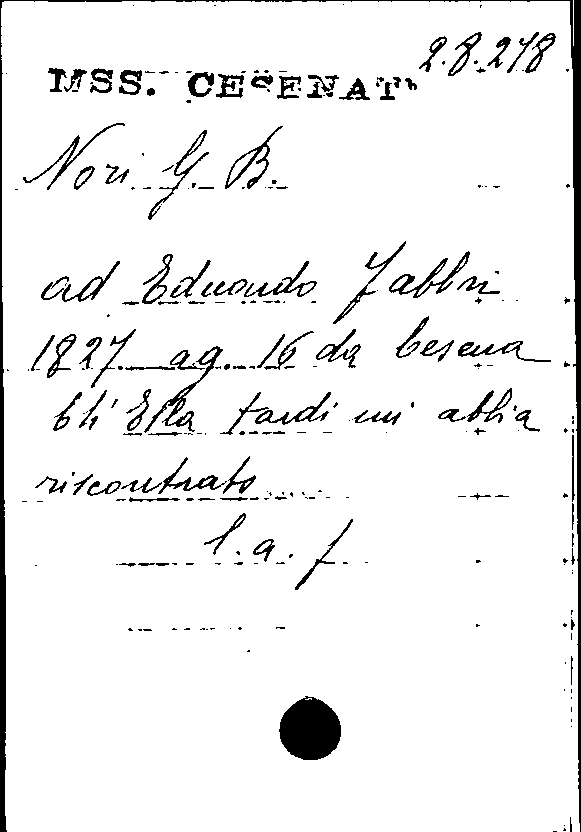 2.8.218
MSS. CESENATI
Nori G. B.
ad Eduardo Fabbri
1827 ag. 16 da Cesena
Ch' Ella tardi mi abbia
riscontrato
l. a. f